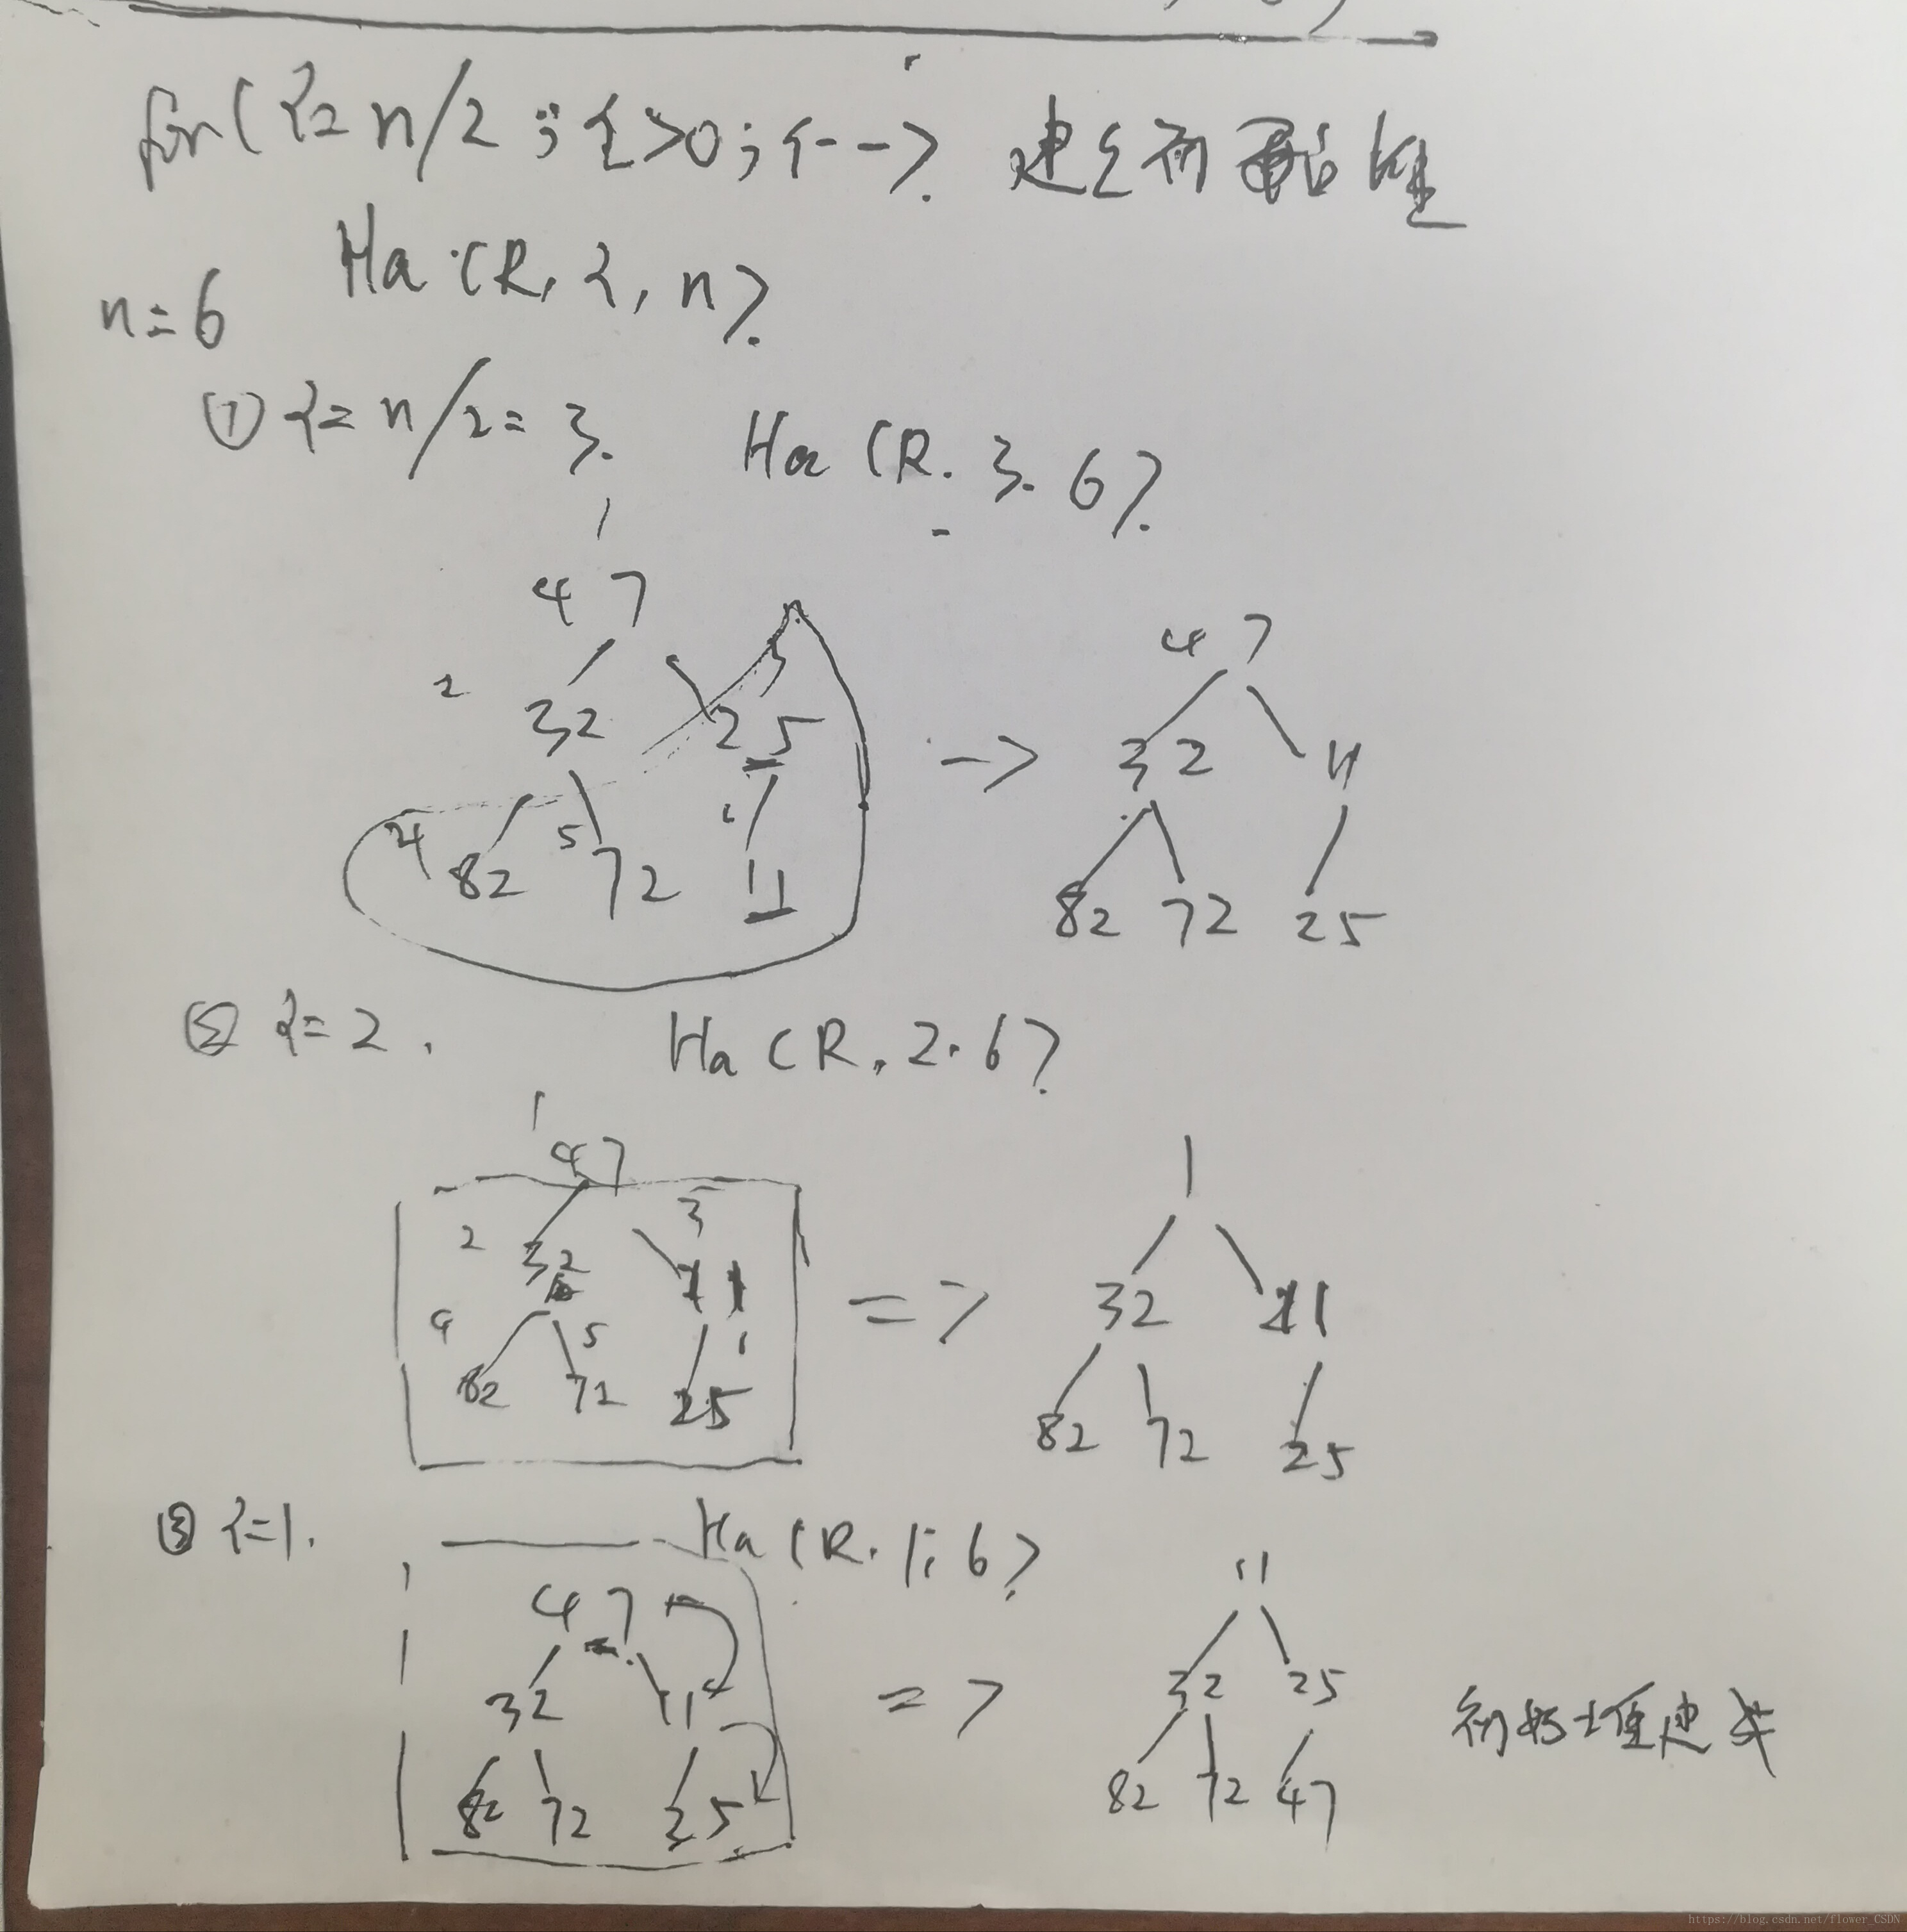 for(i=n/2;i>0;i--) 建立初始堆
Ha(R,i,n)
n=6
① i=n/2=3. Ha(R.3.6)
1
47 47
2 32 25 -> 32 11
4 82 5 72 6 11 82 72 25
② i=2. Ha(R.2.6)
1
47 1
2 32 3 11 => 32 11
4 82 5 72 25 82 72 25
③ i=1. Ha(R.1;6)
47 11
32 11 => 32 25 初始堆建成
82 72 25 82 72 47
https://blog.csdn.net/flower_CSDN